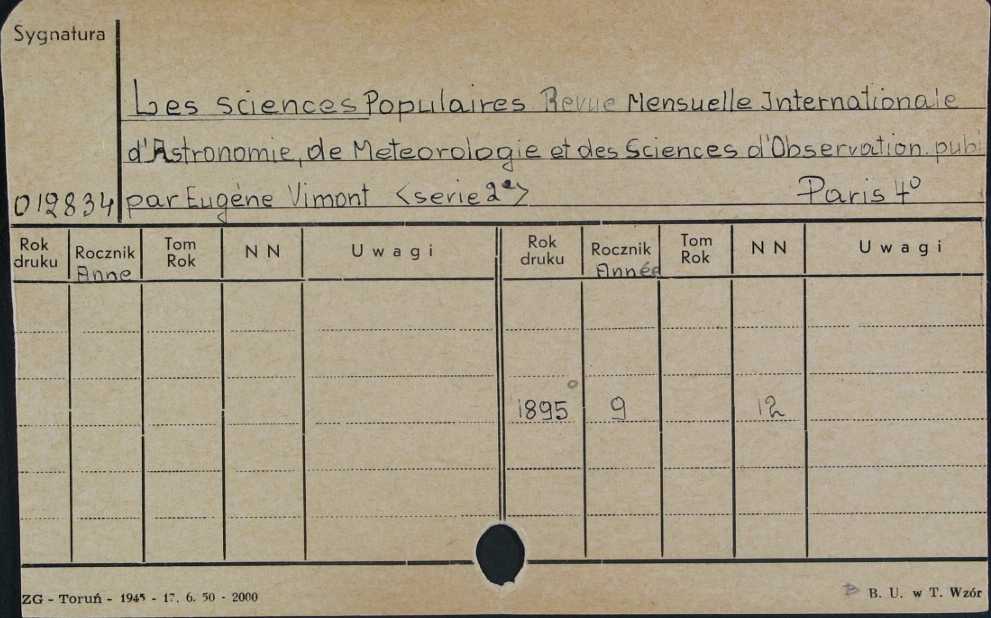 Sygnatura
Les sciences Populaires Revue Mensuelle Internationale
d'Astronomie, de Meteorologie et des Sciences d'Observation. publ
012834 par Eugène Vimont <serie 2e> Paris 4°
Rok druku Rocznik Anne Tom Rok N N Uwagi Rok druku Rocznik Année Tom Rok N N Uwagi
1895 9 12
ZG - Toruń - 1945 - 17. 6. 50 - 2000 B. U. w T. Wzór